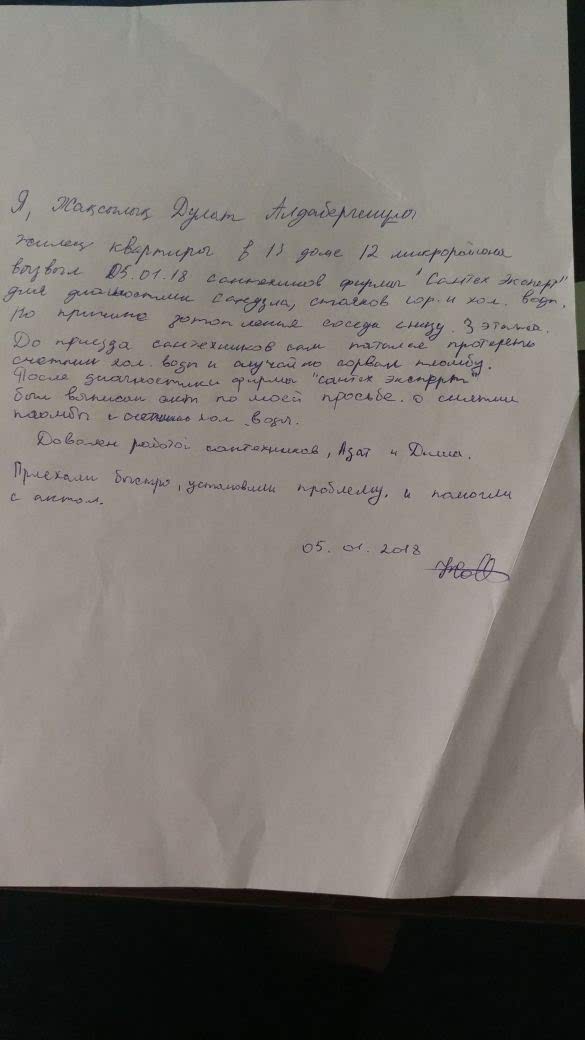 Я, Жақсылық Дулат Алдабергенұлы
жилец квартиры в 13 доме 12 микрорайона
вызвал 05.01.18 сантехников фирмы "Сантех Эксперт"
для диагностики санузла, стояков гор. и хол. воды.
По причине затопления соседа снизу. 3 этажа.
До приезда сантехников сам пытался протереть
счетчик хол. воды и случайно сорвал пломбу.
После диагностики фирмы "Сантех эксперт"
был выписан акт по моей просьбе. о снятии
пломбы с счетчика хол. воды.
Доволен работой сантехников, Азат и Дима.
Приехали быстро, установили проблему. и помогли
с актом.
05.01.2018